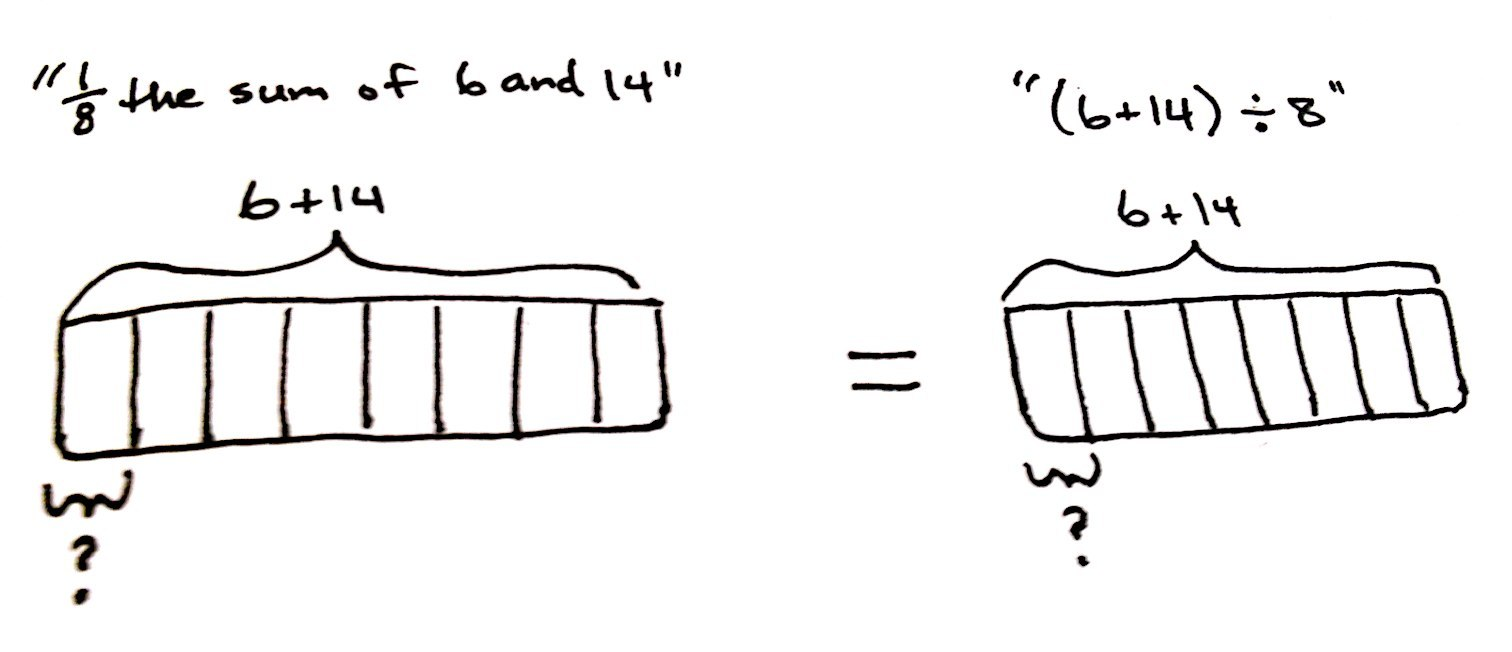 "1/8 the sum of 6 and 14"
"(6+14) ÷ 8"
6+14
6+14
=
?
?